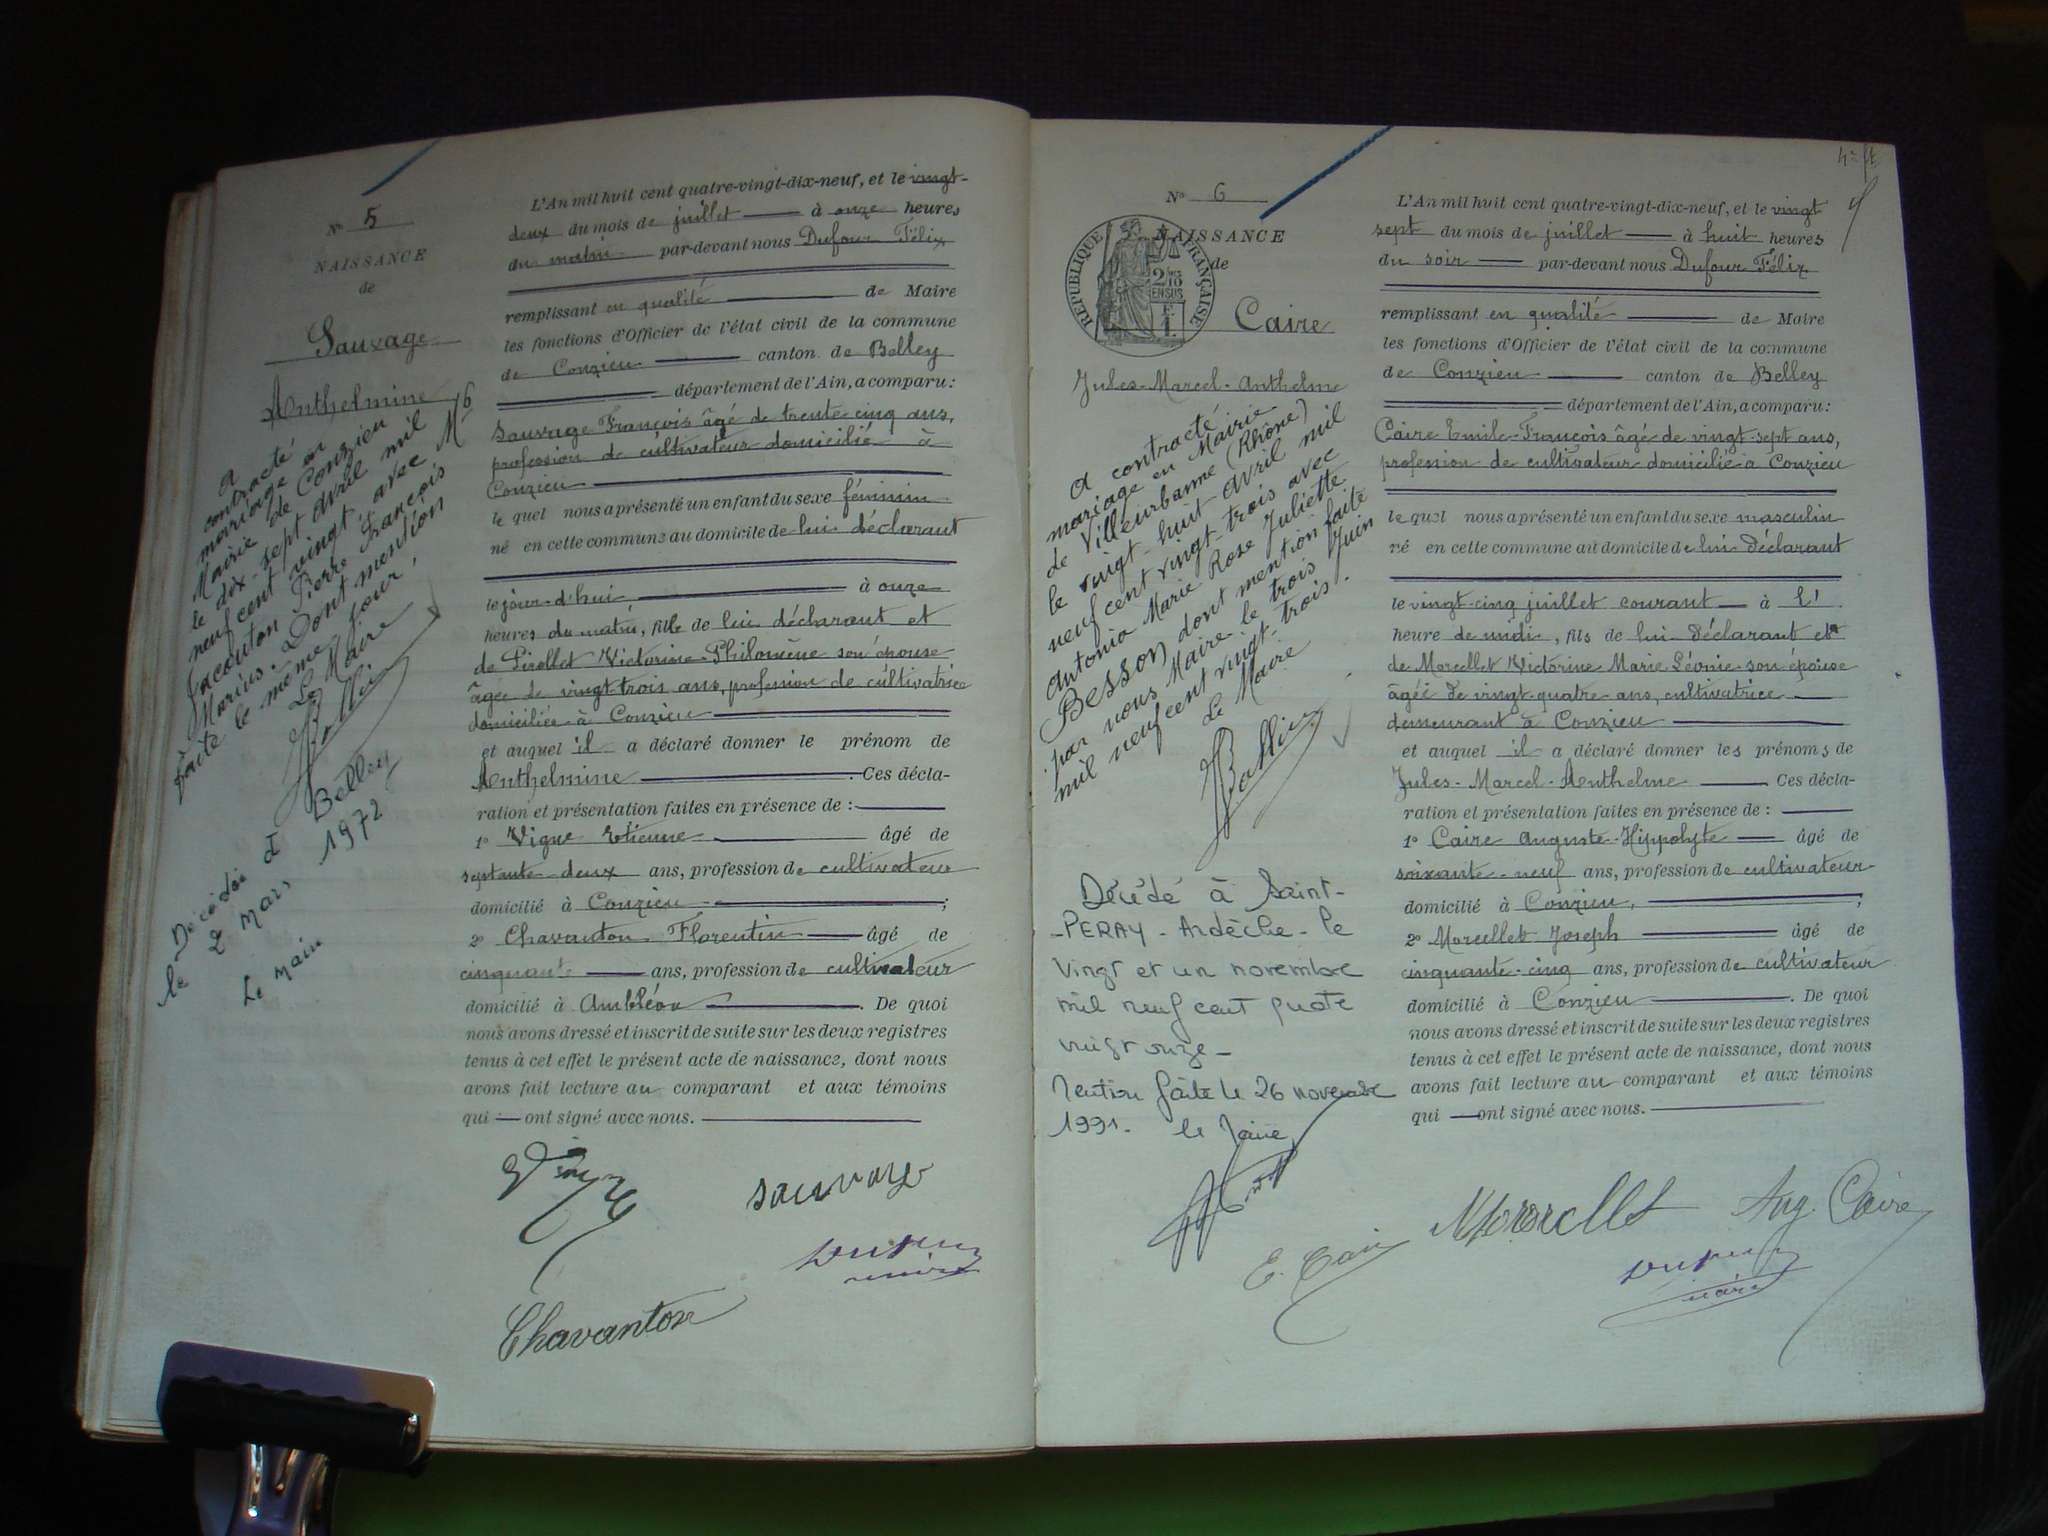 N° 5
NAISSANCE
de
Sauvage
Anthelmine
A
contracté
mariage en
Mairie de Conzieu
le dix-sept avril mil
neuf cent vingt avec Mr
Jacouton Pierre François
Marius. Dont mention
faite le même jour.
Le Maire
Décédée à Belley
le 2 Mars 1972
Le Maire
L'An mil huit cent quatre-vingt-dix-neuf, et le vingt-
deux du mois de juillet à onze heures
du matin par-devant nous Dufour Félix
remplissant en qualité de Maire
les fonctions d'Officier de l'état civil de la commune
de Conzieu canton de Belley
département de l'Ain, a comparu:
Sauvage François âgé de trente cinq ans,
profession de cultivateur domicilié à
Conzieu
le quel nous a présenté un enfant du sexe féminin
né en cette commune au domicile de lui déclarant
le jour d'hui à onze
heures du matin, fille de lui déclarant et
de Pirollet Victorine Philomène son épouse
âgée de vingt trois ans, profession de cultivatrice
domiciliée à Conzieu
et auquel il a déclaré donner le prénom de
Anthelmine . Ces décla-
ration et présentation faites en présence de :
1° Vigne Etienne âgé de
septante deux ans, profession de cultivateur
domicilié à Conzieu ;
2° Chavanton Florentin âgé de
cinquante ans, profession de cultivateur
domicilié à Ambléon . De quoi
nous avons dressé et inscrit de suite sur les deux registres
tenus à cet effet le présent acte de naissance, dont nous
avons fait lecture au comparant et aux témoins
qui — ont signé avec nous.
sauvage
Chavanton
N° 6
NAISSANCE
de
RÉPUBLIQUE FRANÇAISE
2/10
EN SUS
Caire
Jules-Marcel-Anthelme
A contracté
mariage en Mairie
de Villeurbanne (Rhône)
le vingt-huit avril mil
neuf cent vingt-trois avec
Antonia Marie Rose Juliette
Besson dont mention faite
par nous Maire le trois Juin
mil neuf cent vingt-trois.
Le Maire
Décédé à Saint-
-PERAY - Ardèche - le
vingt et un novembre
mil neuf cent quatre
vingt onze -
Mention faite le 26 novembre
1991. le Maire
L'An mil huit cent quatre-vingt-dix-neuf, et le vingt
sept du mois de juillet à huit heures
du soir par-devant nous Dufour Félix
remplissant en qualité de Maire
les fonctions d'Officier de l'état civil de la commune
de Conzieu canton de Belley
département de l'Ain, a comparu:
Caire Emile-François âgé de vingt-sept ans,
profession de cultivateur domicilié à Conzieu
le quel nous a présenté un enfant du sexe masculin
né en cette commune au domicile de lui déclarant
le vingt-cinq juillet courant à l'
heure de midi, fils de lui déclarant et
de Morcellet Victorine Marie Léonie son épouse
âgée de vingt-quatre ans, cultivatrice
demeurant à Conzieu
et auquel il a déclaré donner les prénoms de
Jules-Marcel-Anthelme Ces décla-
ration et présentation faites en présence de :
1° Caire Auguste-Hyppolyte âgé de
soixante-neuf ans, profession de cultivateur
domicilié à Conzieu, ;
2° Morcellet Joseph âgé de
cinquante-cinq ans, profession de cultivateur
domicilié à Conzieu . De quoi
nous avons dressé et inscrit de suite sur les deux registres
tenus à cet effet le présent acte de naissance, dont nous
avons fait lecture au comparant et aux témoins
qui — ont signé avec nous.
E. Caire
Morcellet
Aug. Caire